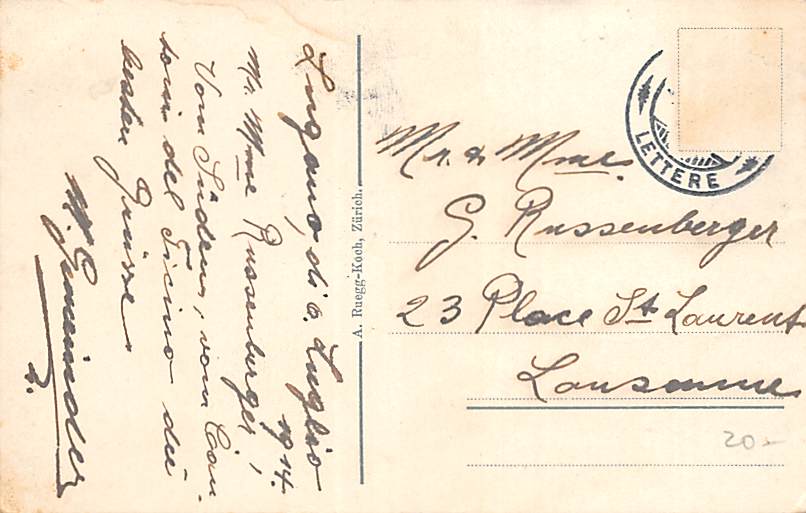 Lugano, di 6. Luglio
1914.
Mr. Mme Russenberger,
Vom Süden, vom Can-
tone del Ticino die
besten Grüsse
A. Ruegg-Koch, Zürich.
LETTERE
Mr. & Mme.
G. Russenberger
23 Place St. Laurent
Lausanne
20.-